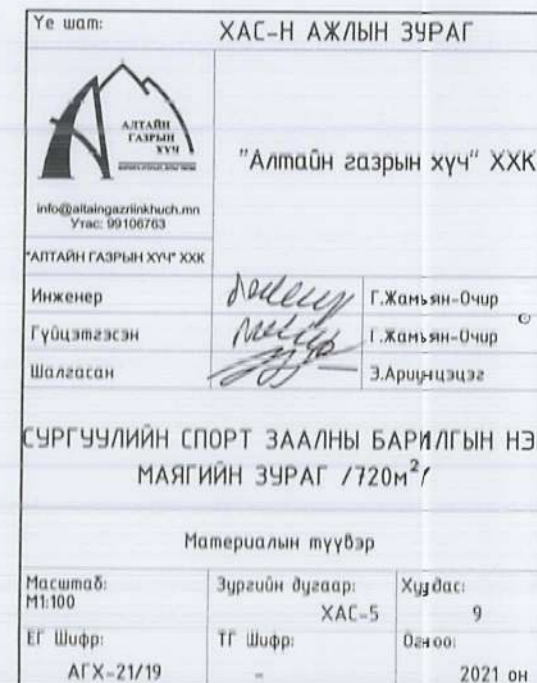 Үе шат:
ХАС-Н АЖЛЫН ЗУРАГ
АЛТАЙН
ГАЗРЫН
ХҮЧ
"Алтайн газрын хүч" ХХК
info@altaingazriinkhuch.mn
Утас: 99106763
"АЛТАЙН ГАЗРЫН ХҮЧ" ХХК
Инженер
Г.Жамъян-Очир
Гүйцэтгэсэн
Г.Жамъян-Очир
Шалгасан
Э.Ариунцэцэг
СУРГУУЛИЙН СПОРТ ЗААЛНЫ БАРИЛГЫН НЭ
МАЯГИЙН ЗУРАГ /720м²/
Материалын түүвэр
Масштаб:
М1:100
Зургийн дугаар:
ХАС-5
Хуудас:
9
ЕГ Шифр:
АГХ-21/19
ТГ Шифр:
-
Огноо:
2021 он